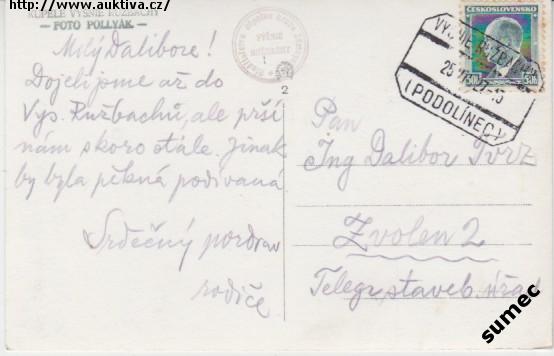 http://www.auktiva.cz/
KÚPELE VYŠNIE RUŽBACHY
— FOTO POLLYÁK —
Milý Dalibore!
Dojeli jsme až do
Vys. Ružbachů, ale prší
nám skoro stále. Jinak
by byla pěkná podívaná
Srdečný pozdrav
rodiče.
2
ČESKOSLOVENSKO
50h
VYŠNIE RUŽBACHY
(PODOLÍNEC)
Pan
Ing Dalibor
Zvolen 2
Telegr. staveb. úřad
sumec